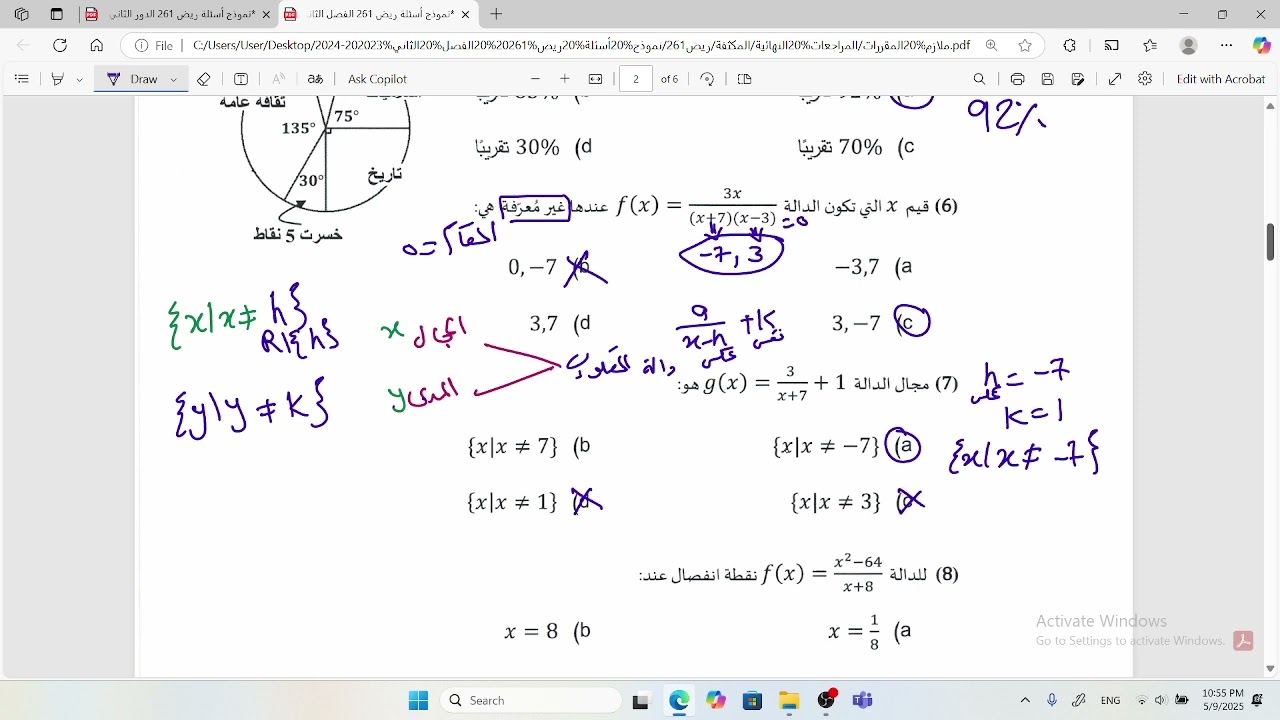 نموذج أسئلة ريض 261 الفصل الثاني*
نموذج أسئلة ريض 261 الدور الثاني*
File C:/Users/User/Desktop/ملازم%20المقررات/المراجعات%20النهائية/المكثفة/ريض261/نموذج%20أسئلة%20ريض%20261%20الفصل%20الثاني%202023-2024.pdf
Draw Ask Copilot 2 of 6 Edit with Acrobat
ثقافة عامة
135°
75°
30°
تاريخ
خسرت 5 نقاط
92%
d) 30% تقريبًا
c) 70% تقريبًا
(6) قيم x التي تكون الدالة f(x) = 3x/(x+7)(x−3) عندها غير مُعرّفة هي:
= 0
المقام = 0
-7, 3
a) −3,7
b) 0, −7
c) 3, −7
d) 3,7
{x|x ≠ h}
R\{h}
المجال x
المدى y
{y|y ≠ K}
دالة المقلوب
a/(x-h) + K
عكس
نفس
(7) مجال الدالة g(x) = 3/(x+7) + 1 هو:
h = -7
عكس
K = 1
{x|x ≠ -7}
a) {x|x ≠ −7}
b) {x|x ≠ 7}
c) {x|x ≠ 3}
d) {x|x ≠ 1}
(8) للدالة f(x) = (x²−64)/(x+8) نقطة انفصال عند:
a) x = 1/8
b) x = 8
Activate Windows
Go to Settings to activate Windows.
Search
ENG
10:55 PM
5/9/2025